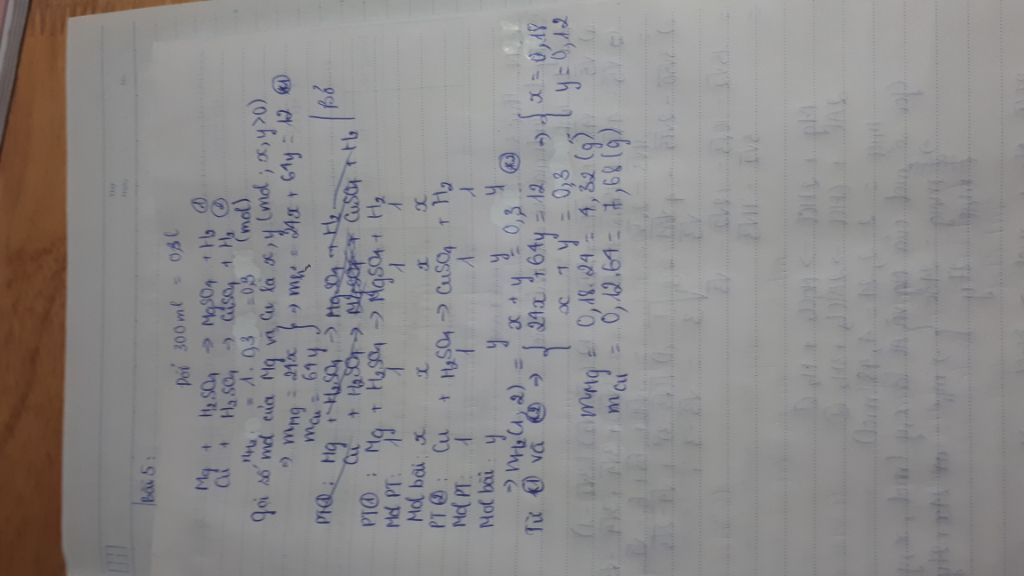 Bài 5:
Đổi 300ml = 0,3l
Mg + H₂SO₄ → MgSO₄ + H₂ ①
Cu + H₂SO₄ → CuSO₄ + H₂ ②
nH₂ = 1.0,3 = 0,3 (mol)
Gọi số mol của Mg và Cu là x, y (mol; x,y>0)
⇒ mMg = 24x
mCu = 64y } → mhh = 24x + 64y = 12
PT①: Mg + H₂SO₄ → MgSO₄ + H₂ | Bỏ
Cu + H₂SO₄ → CuSO₄ + H₂
PT①: Mg + H₂SO₄ → MgSO₄ + H₂
Mol PT: 1 1 1 1
Mol bài: x x x x
PT②: Cu + H₂SO₄ → CuSO₄ + H₂
Mol PT: 1 1 1 1
Mol bài: y y y y
→ nH₂(1,2) = x + y = 0,3
Từ và → { 24x + 64y = 12 → { x = 0,18
x + y = 0,3 y = 0,12
mMg = 0,18.24 = 4,32 (g)
mCu = 0,12.64 = 7,68 (g)